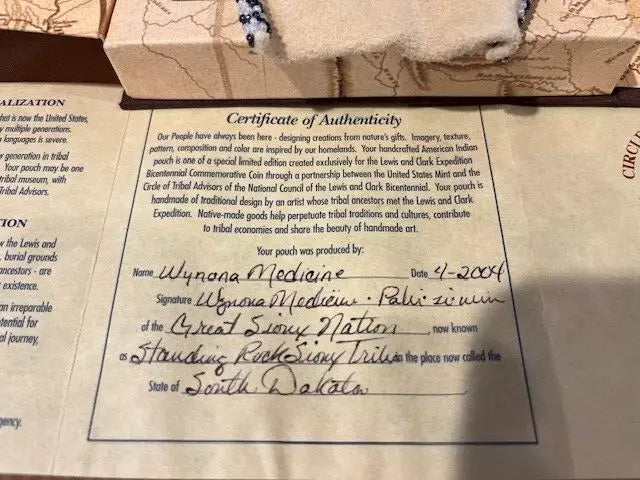 ALIZATION
hat is now the United States,
y multiple generations.
languages is severe.
generation in tribal
Your pouch may be one
tribal museum, with
Tribal Advisors.
ION
w the Lewis and
burial grounds
ancestors - are
existence.
an irreparable
tential for
al journey,
gency.
Certificate of Authenticity
Our People have always been here - designing creations from nature's gifts. Imagery, texture,
pattern, composition and color are inspired by our homelands. Your handcrafted American Indian
pouch is one of a special limited edition created exclusively for the Lewis and Clark Expedition
Bicentennial Commemorative Coin through a partnership between the United States Mint and the
Circle of Tribal Advisors of the National Council of the Lewis and Clark Bicentennial. Your pouch is
handmade of traditional design by an artist whose tribal ancestors met the Lewis and Clark
Expedition. Native-made goods help perpetuate tribal traditions and cultures, contribute
to tribal economies and share the beauty of handmade art.
Your pouch was produced by:
Name Wynona Medicine Date 4-2004
Signature Wynona Medicine
of the Great Sioux Nation, now known
as Standing Rock Sioux Tribe in the place now called the
State of South Dakota.
CIRCL